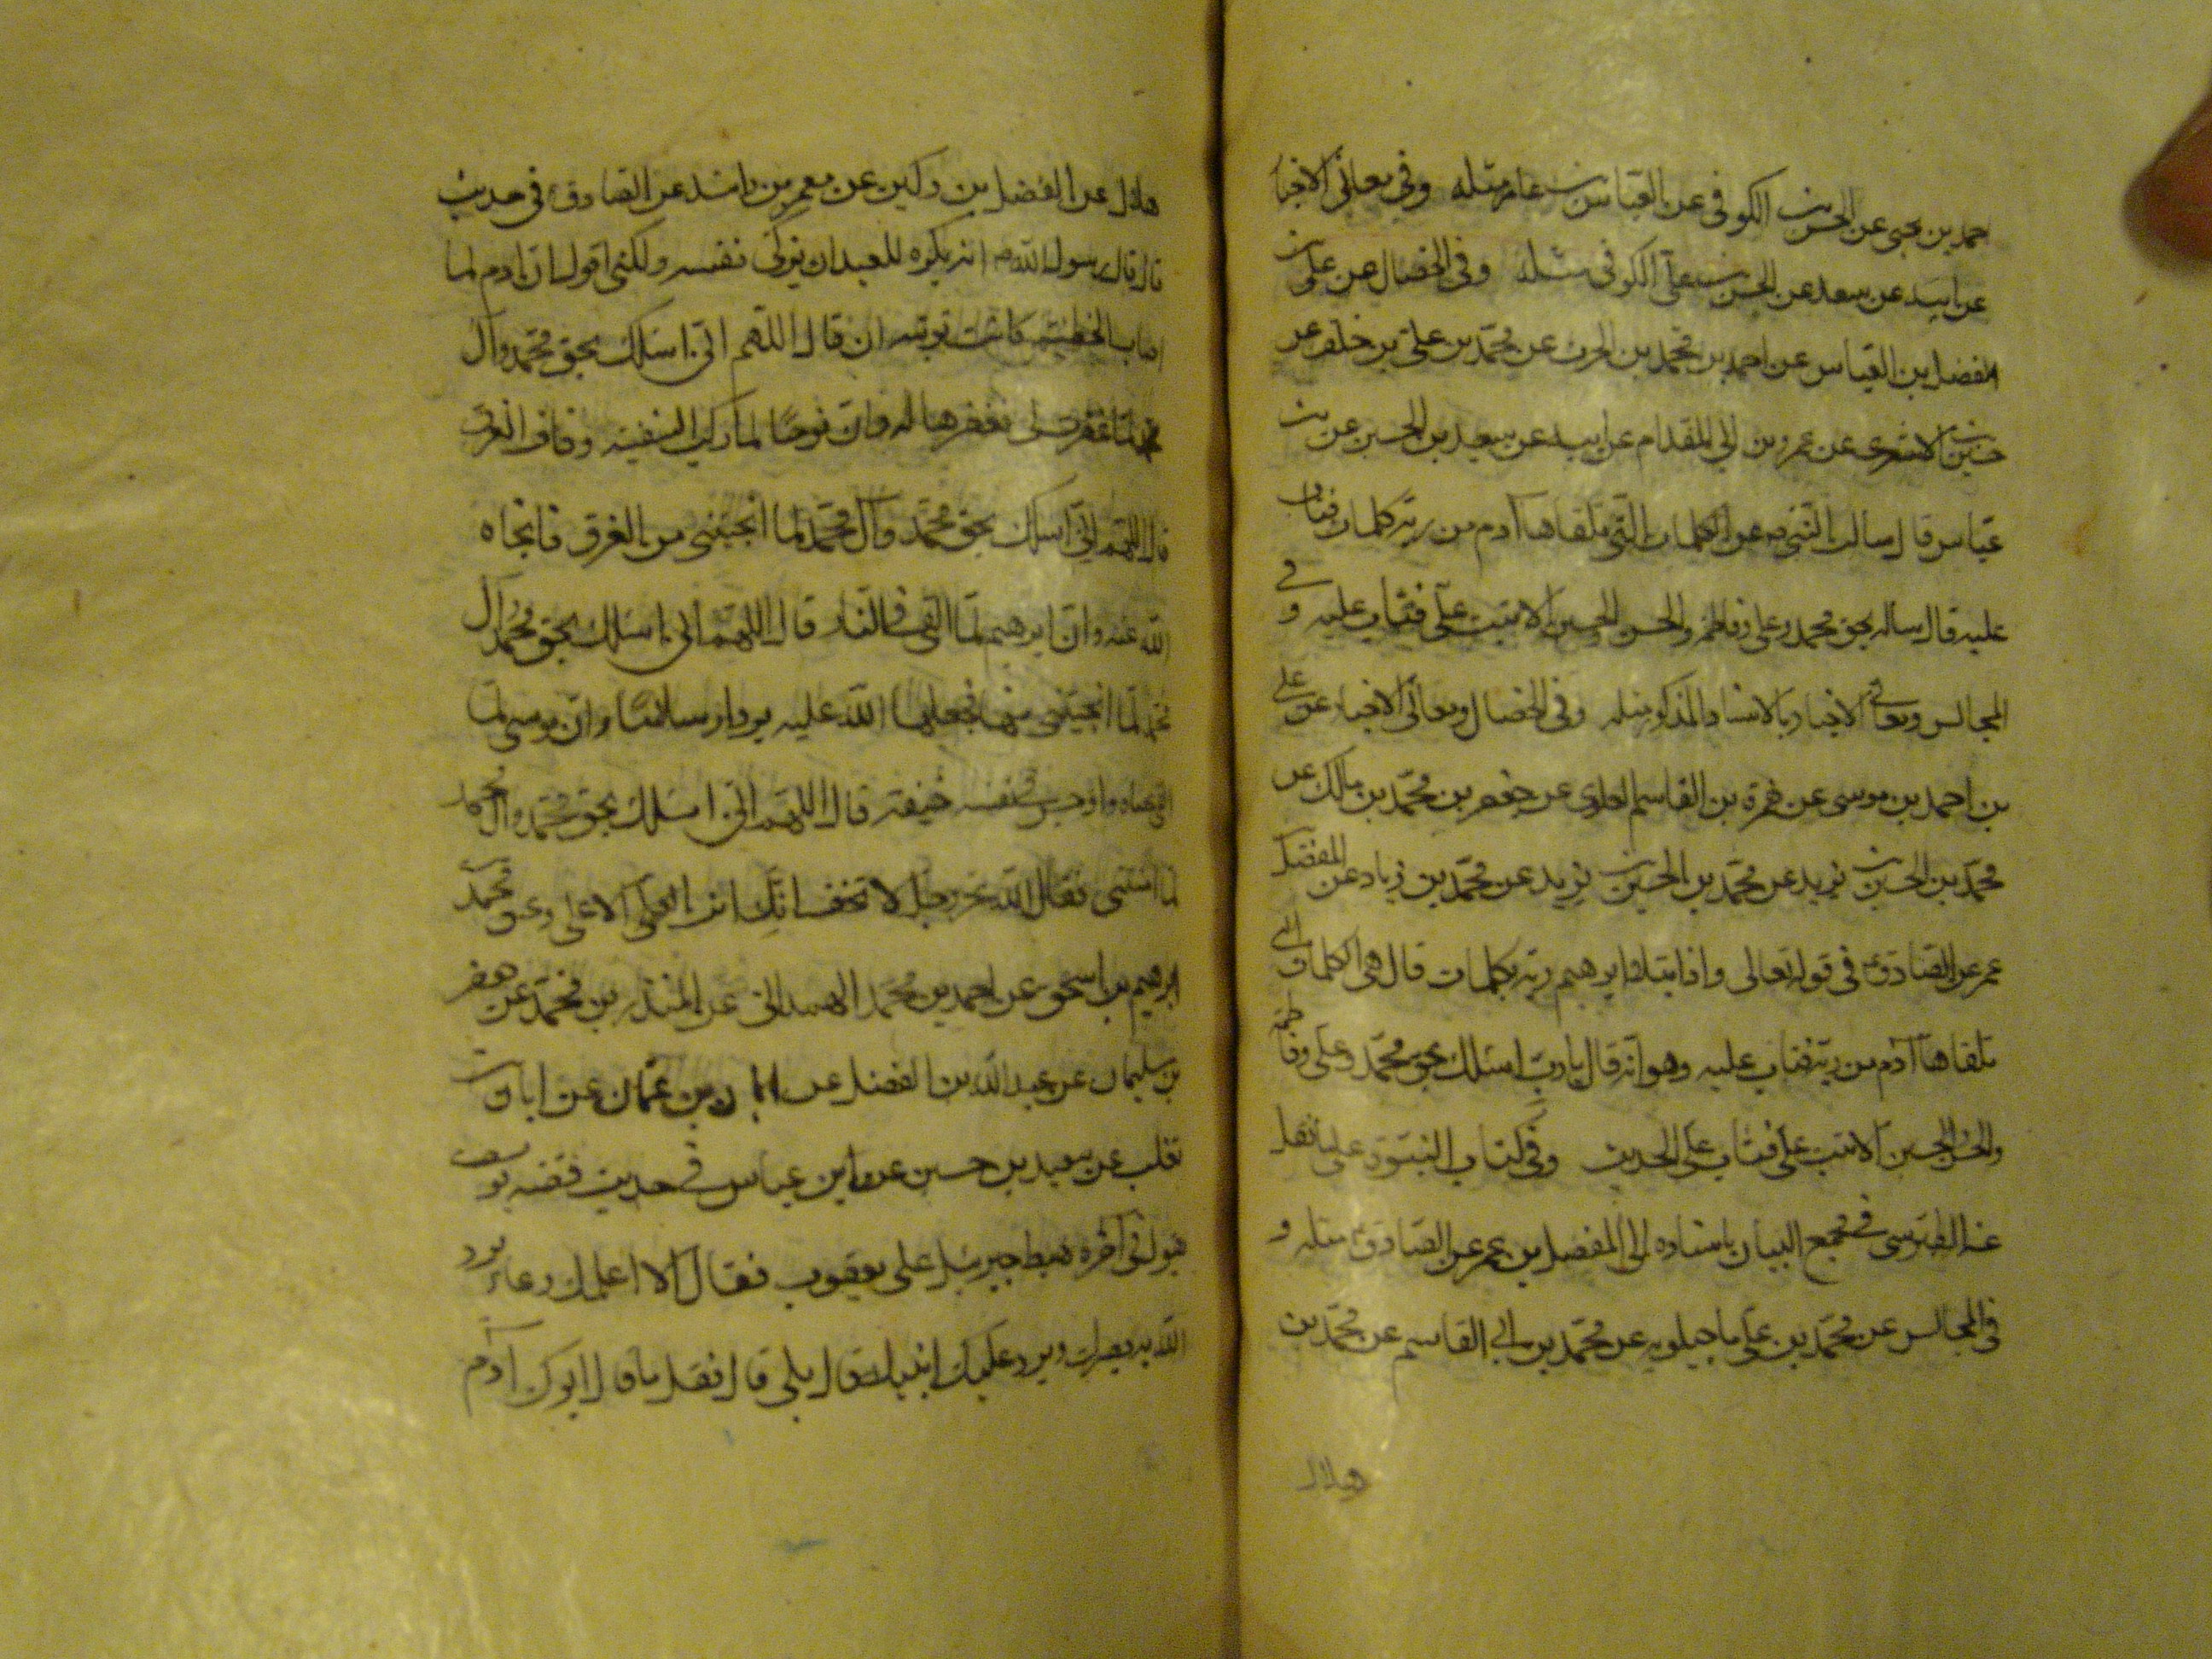 حمد بن يحيى عن الحسن بن الكوفي عن العباس بن عامر مثله وفي معاني الاخبا
عن ابيه عن سعد عن الحسن بن علي الكوفي مثله وفي الخصال عن علي بن
الفضل بن العباس عن احمد بن محمد بن الحرث عن محمد بن علي بن خلف عن
حسين الاشقري عن عمرو بن ابي المقدام عن ابيه عن سعيد بن الحسين عن بن
عباس قال سالت النبي ص عن الكلمات التي تلقاها آدم من ربه كلمات فتاب
عليه قال ساله بحق محمد وعلي وفاطمة والحسن والحسين الا تبت علي فتاب عليه وفي
المجالس ومعاني الاخبار بالاسناد المذكور مثله وفي الخصال ومعاني الاخبار عن علي
بن احمد بن موسى عن حمزة بن القاسم العلوي عن جعفر بن محمد بن مالك عن
محمد بن الحسين بن زيد عن محمد بن الحسين بن زيد عن محمد بن زياد عن المفضل
عمر عن الصادق ع في قوله تعالى واذ ابتلى ابرهيم ربه بكلمات قال هي الكلمات التي
تلقاها آدم من ربه فتاب عليه وهو انه قال يا رب اسئلك بحق محمد وعلي وفاطمة
والحسن والحسين الا تبت علي فتاب علي الحديث وفي كتاب النبوة على ما نقل
عنه الطبرسي في مجمع البيان باسناده الى المفضل بن عمر عن الصادق ع مثله و
في المجالس عن محمد بن علي ماجيلويه عن محمد بن ابي القاسم عن محمد بن
هلال
هلال عن الفضل بن دكين عن معمر بن راشد عن الصادق ع في حديث
قال قال رسول الله ص انه يكره للعبد ان يزكي نفسه ولكني اقول ان آدم لما
اصاب الخطيئة كانت توبته ان قال اللهم اني اسئلك بحق محمد وآل
محمد لما غفرت لي فغفرها له وان نوحا لما ركب السفينة وخاف الغرق
قال اللهم اني اسئلك بحق محمد وآل محمد لما انجيتني من الغرق فانجاه
الله عنه وان ابرهيم لما القي في النار قال اللهم اني اسئلك بحق محمد وآل
محمد لما انجيتني منها فجعلها الله عليه بردا وسلاما وان موسى لما
القى عصاه واوجس في نفسه خيفة قال اللهم اني اسئلك بحق محمد وآل محمد
لما امنتني فقال الله عز وجل لا تخف انك انت الاعلى وعن محمد
ابرهيم بن اسحق عن احمد بن محمد الهمداني عن المنذر بن محمد عن جعفر
بن سليمان عن عبد الله بن الفضل عن ابان بن عثمان عن ابان بن
تغلب عن سعيد بن حسين عن ابن عباس في حديث قصة يوسف
يقول في آخره هبط جبرئيل على يعقوب فقال الا اعلمك دعاء يرد
الله به بصرك ويرد عليك ابنيك قال بلى قال فقل ما قال ابوك آدم